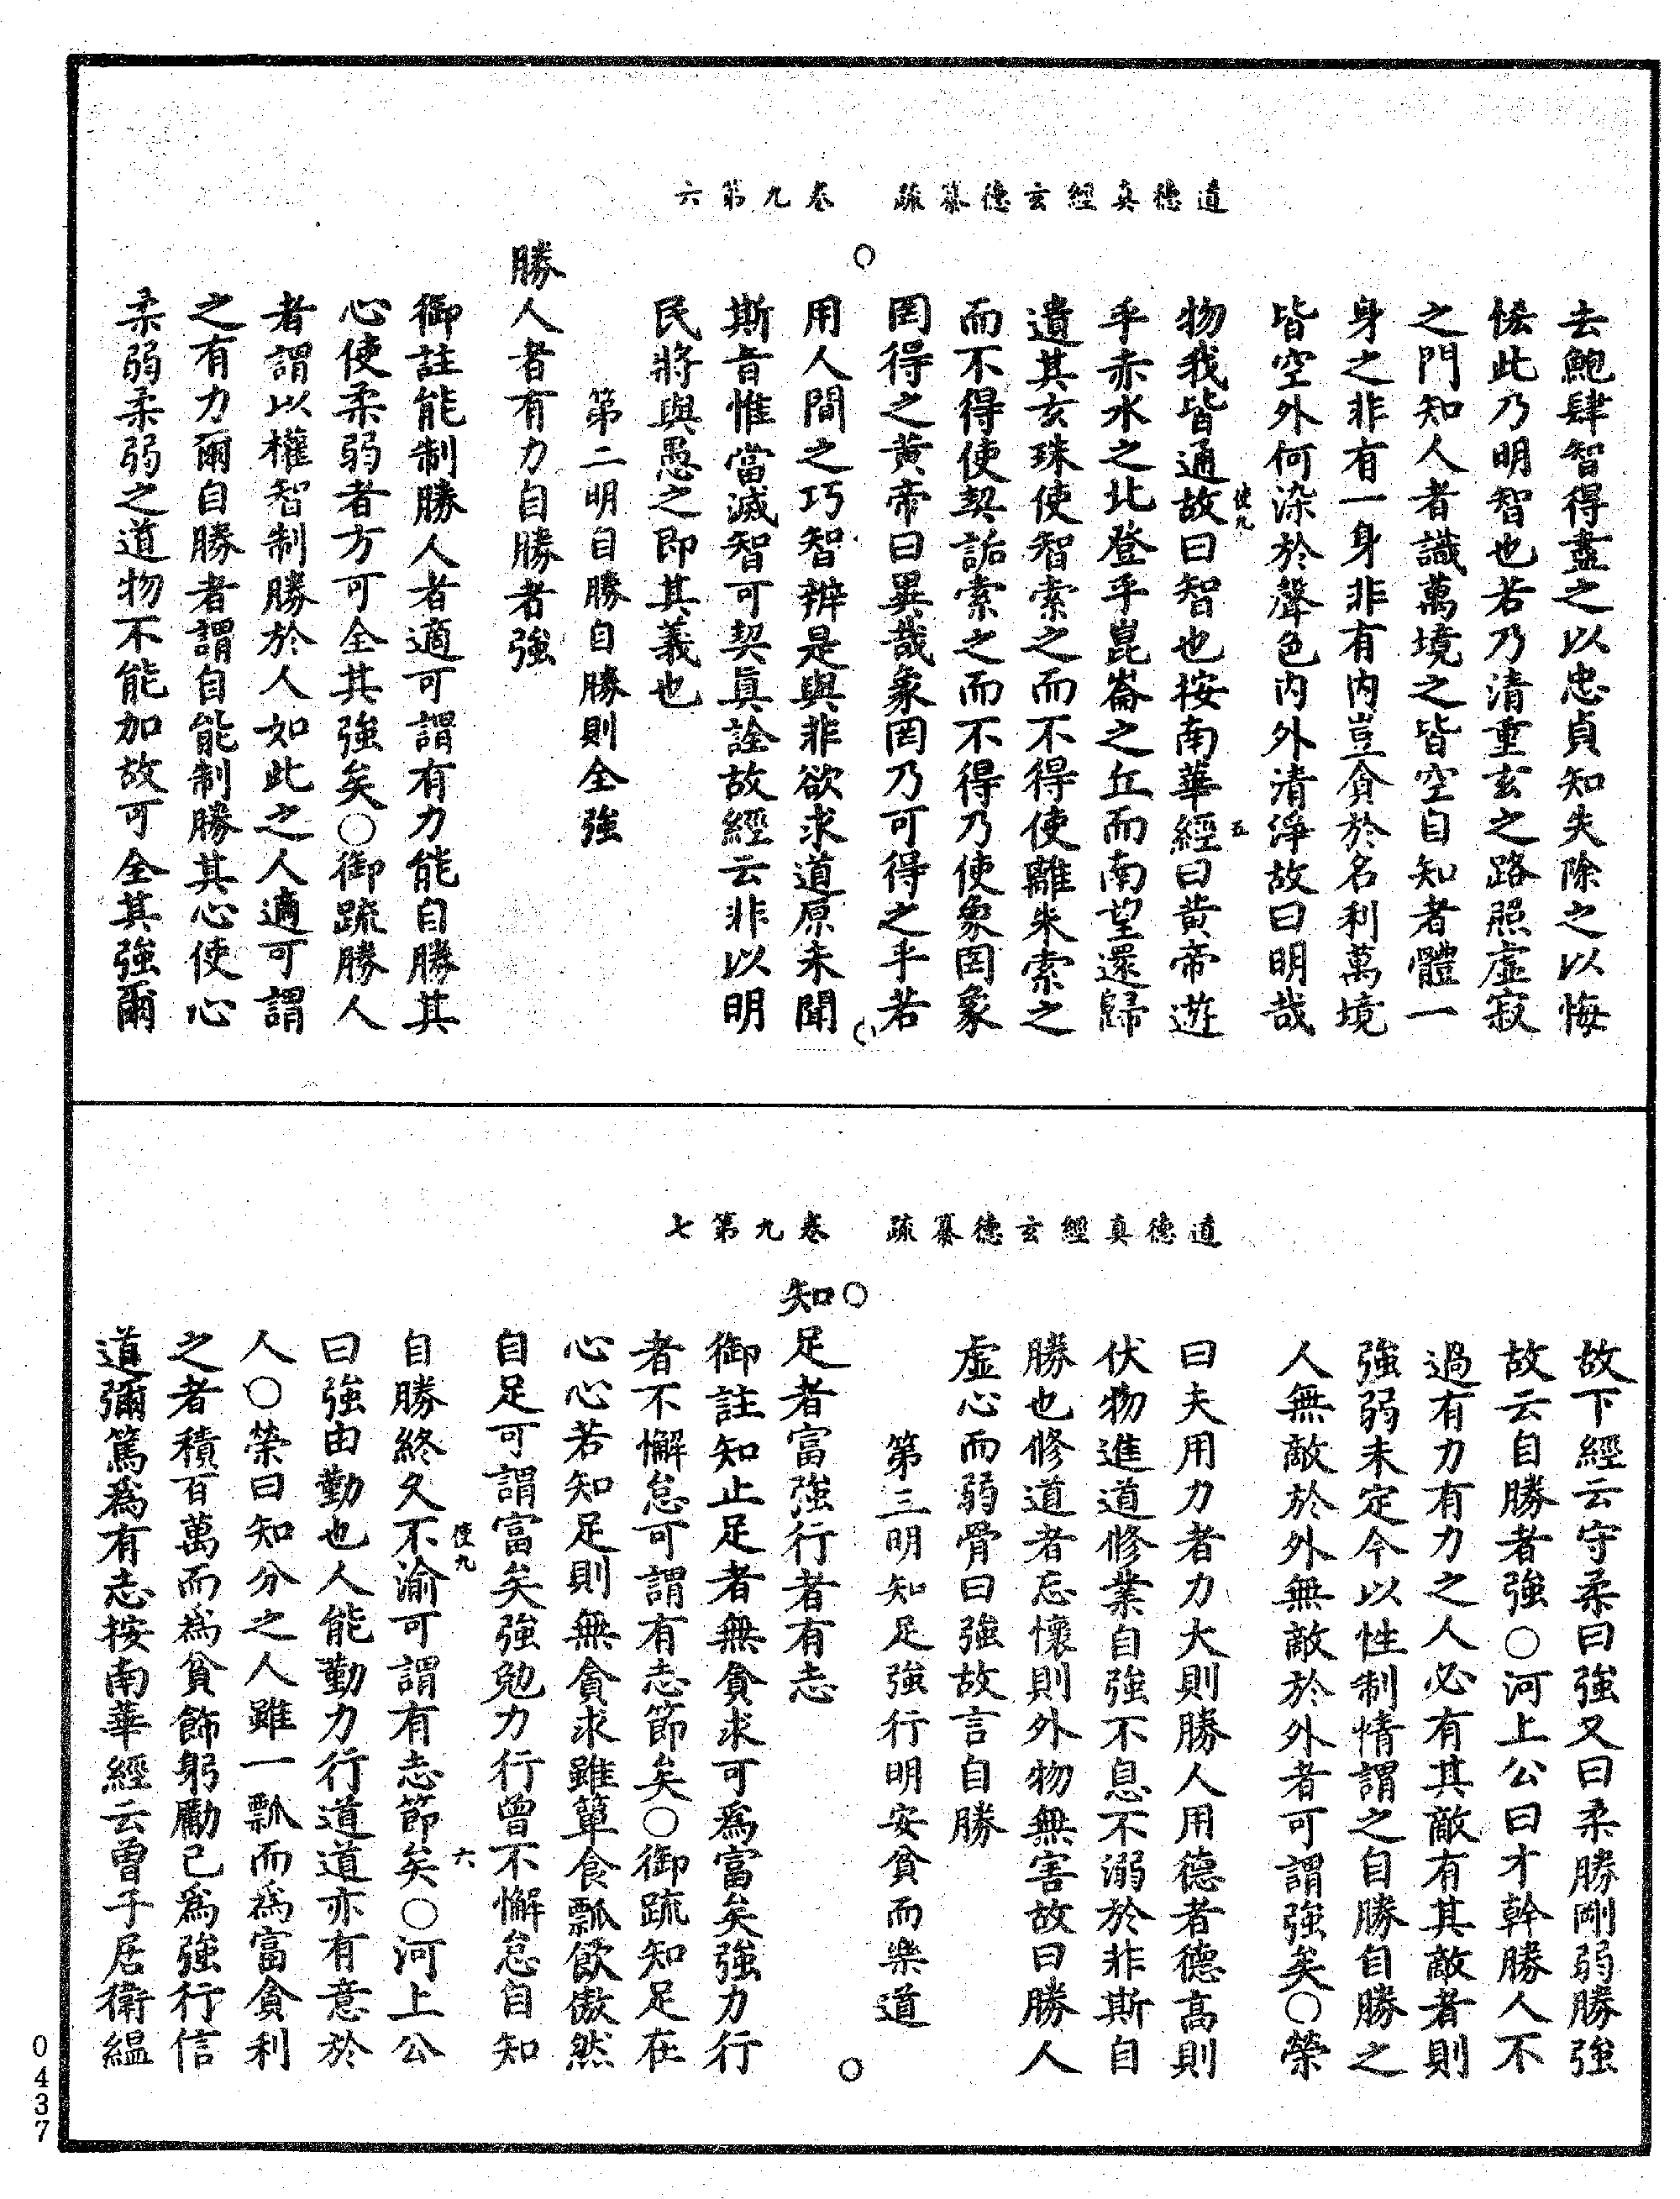 道德真經玄德纂疏　卷九第六
去鮑肆智得盡之以忠貞知失除之以悔
恡此乃明智也若乃清重玄之路照虛寂
之門知人者識萬境之皆空自知者體一
身之非有一身非有内豈貪於名利萬境
皆空外何染於聲色内外清淨故曰明哉
使九　五
物我皆通故曰智也按南華經曰黃帝遊
乎赤水之北登乎崑崙之丘而南望還歸
遺其玄珠使智索之而不得使離朱索之
而不得使契詬索之而不得乃使象罔象
罔得之黃帝曰異哉象罔乃可得之乎若
用人間之巧智辯是與非欲求道原未聞
斯旨惟當滅智可契真詮故經云非以明
民將與愚之即其義也
第二明自勝自勝則全強
勝人者有力自勝者強
御註能制勝人者適可謂有力能自勝其
心使柔弱者方可全其強矣○御疏勝人
者謂以權智制勝於人如此之人適可謂
之有力爾自勝者謂自能制勝其心使心
柔弱柔弱之道物不能加故可全其強爾
道德真經玄德纂疏　卷九第七
故下經云守柔曰強又曰柔勝剛弱勝強
故云自勝者強○河上公曰才幹勝人不
過有力有力之人必有其敵有其敵者則
強弱未定今以性制情謂之自勝自勝之
人無敵於外無敵於外者可謂強矣○榮
曰夫用力者力大則勝人用德者德高則
伏物進道修業自強不息不溺於非斯自
勝也修道者忘懷則外物無害故曰勝人
虛心而弱骨曰強故言自勝
第三明知足強行明安貧而樂道
知足者富強行者有志
御註知止足者無貪求可為富矣強力行
者不懈怠可謂有志節矣○御疏知足在
心心若知足則無貪求雖簞食瓢飲傲然
自足可謂富矣強勉力行曾不懈怠自知
使九　六
自勝終久不渝可謂有志節矣○河上公
曰強由勤也人能勤力行道道亦有意於
人○榮曰知分之人雖一瓢而為富貪利
之者積百萬而為貧飾躬勵己為強行信
道彌篤為有志按南華經云曾子居衛緼
0437